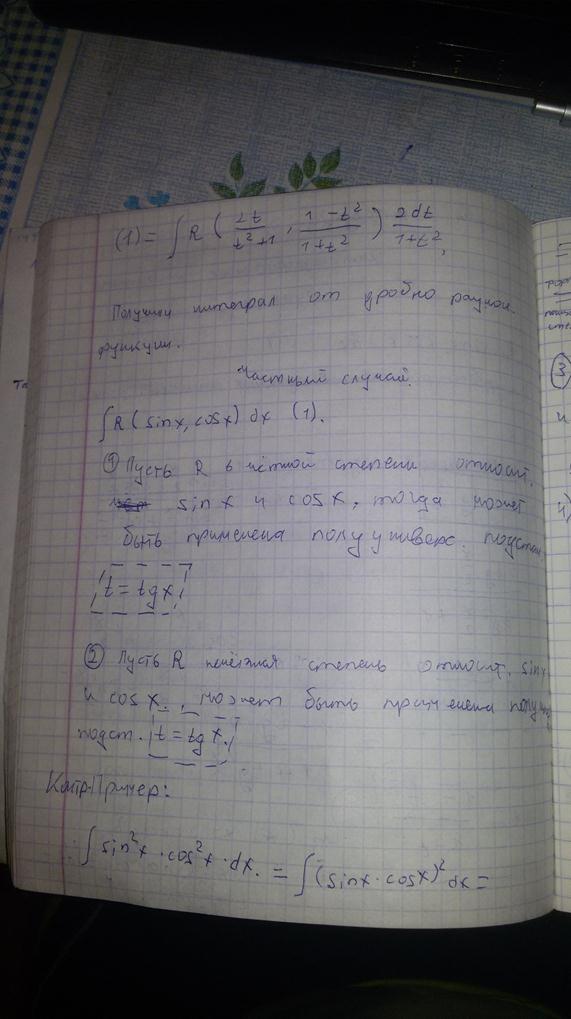 (1) = ∫ R ( 2t / t²+1 , 1 - t² / 1+t² ) 2dt / 1+t² ,
Получили интеграл от дробно рацион.
функции.
Частный случай.
∫ R ( sinx, cosx) dx (1).
① Пусть R в чётной степени относит.
sin x и cos x, тогда может
быть применена полууниверс. подстан
t = tg x
② Пусть R нечётная степень относит. sinx
и cos x. , может быть применена полу
подст. t = tg x.
Контр-Пример:
∫ sin²x · cos²x · dx. = ∫ (sinx · cosx)² dx =